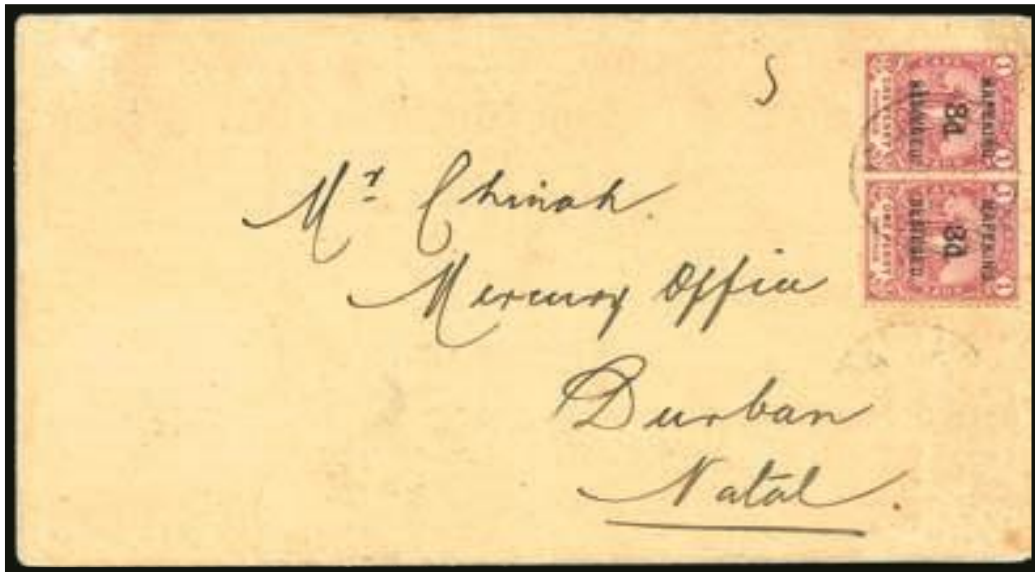 S
Mr Chinoh.
Mercury Office
Durban
Natal
MAFEKING
3d
BESIEGED.
ONE PENNY
1
1
MAFEKING
3d
BESIEGED.
ONE PENNY
1
1